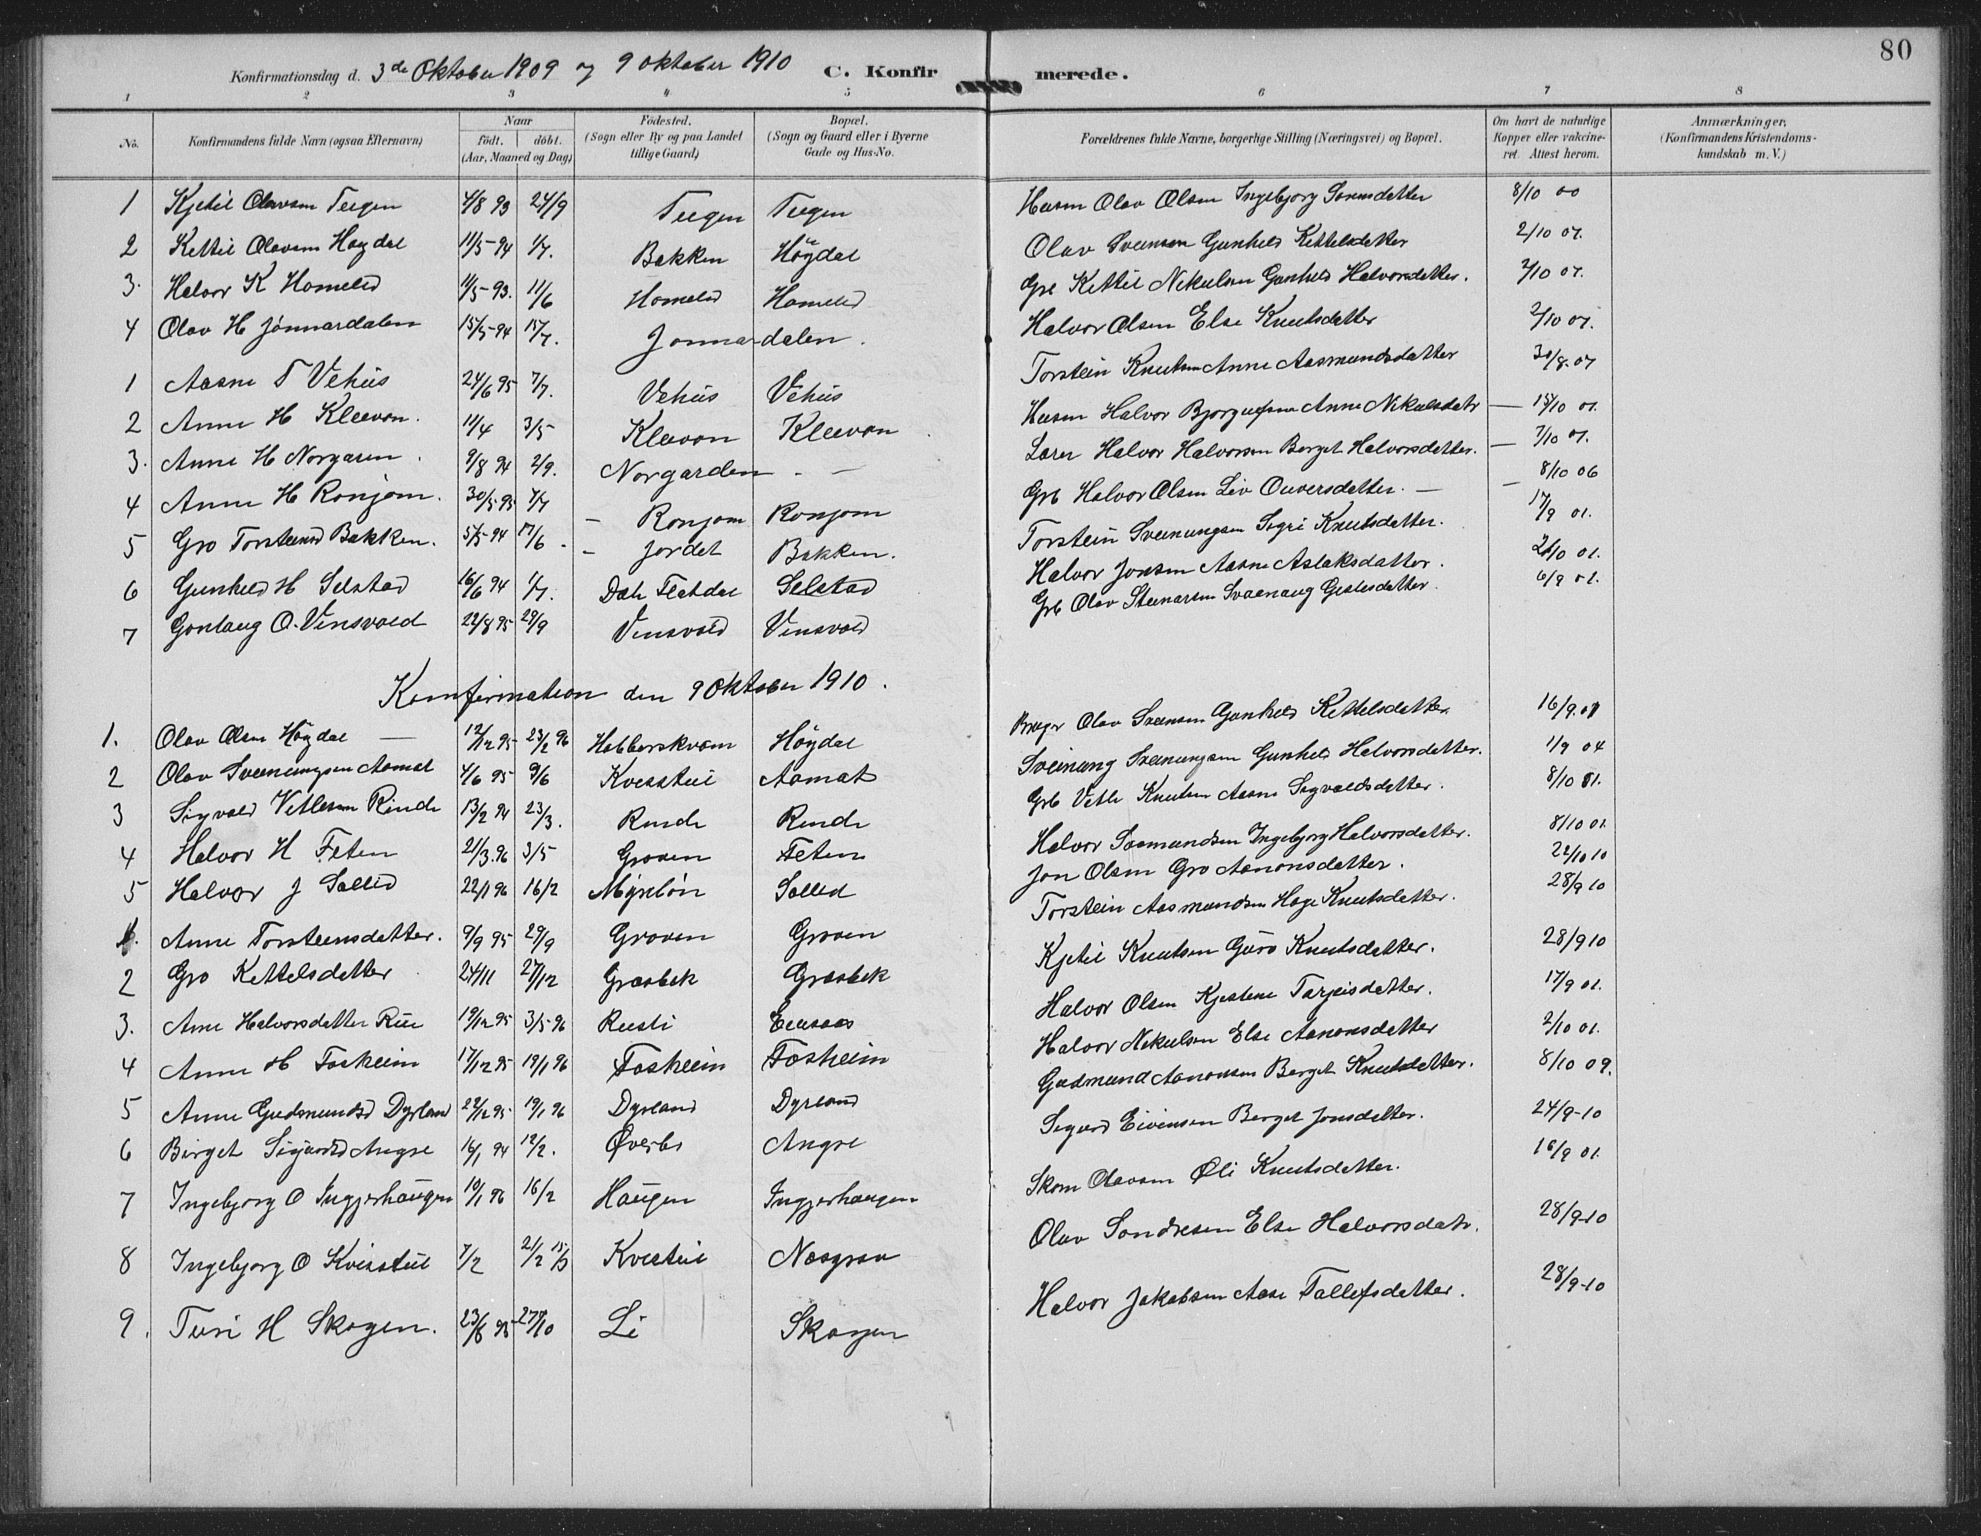 80
Konfirmationsdag d. 3de Oktober 1909 og 9 oktober 1910 C. Konfirmerede.
1 2 3 4 5 6 7 8
No. Konfirmandens fulde Navn (ogsaa Efternavn) Naar født. døbt. (Aar, Maaned og Dag) Fødested. (Sogn eller By og paa Landet tillige Gaard) Bopæl. (Sogn og Gaard eller i Byerne Gade og Hus-No. Forældrenes fulde Navne, borgerlige Stilling (Næringsvei) og Bopæl. Om havt de naturlige Kopper eller vakcineret. Attest herom. Anmærkninger, (Konfirmandens Kristendomskundskab m. V.)
1 Kjetil Olavsen Teigen 4/8 93 24/9 Teigen Teigen Husm Olav Olsen Ingebjorg 8/10 00
2 Kettil Olavsen Høgdal 11/5-94 1/7. Bakken Høgdal Olav Sveinsen Gunhild Kettelsdatter 2/10 07.
3. Halvor K Homelid 11/5-93. 11/6 Homelid Homelid Kettil Nikulsen Gunhild Halvorsdatter. 2/10 07.
4 Olav H Jønnardalen 15/5-94 15/7. Jonnardalen. Halvor Olsen Else Knutsdatter 2/10 07.
1 Aasne T Vehus 24/6 95 7/7. Vehus Vehus Torstein Knutsen Anne Aasmundsdatter 30/8-07
2 Anne H Kleevan. 11/4 3/5 Kleevan Kleevan Husm Halvor Bjorgufsen Anne Nikulsdatr — 15/10 01.
3. Anne H Norgaren. 9/8 94 2/9. Norgarden - — Lærer Halvor Halvorsen Berget Halvorsdatter. — 7/10 07.
4 Anne H Ronjom. 30/5-95 7/7 — Ronjom Ronjom Grb Halvor Olsen Liv Ouversdatter. — 8/10 06
5 Gro Torsteinsd Bakken. 5/5-94 17/6. — Jordet Bakken. Torstein Sveinungsen Sigri Knutsdatter. 17/9 01.
6 Gunhild H Selstad 16/6 94 1/7. Dale Flatdal Selstad Halvor Jonsen Aasne Aslaksdatter. 01.
7 Gonlaug O. Vinsvald 22/8 95 29/9 Vinsvald Vinsvald Grb Olav Steinarsen Svaenaug 6/9 01.
Konfirmation den 9 Oktober 1910.
1. Olav Olsen Høgdal — 12/12 95 23/2 96 Habberskvam Høgdal Olav Sveinsen Gunhild Kettelsdatter. 16/9.01
2 Olav Sveinungsen Aamat 4/6 95 9/6 Kvisstul Aamat Sveinung Sveinungsen Gunhild Halvorsdatter. 1/9 04
3 Sigvald Vetlesen Rinde 13/2 94 23/3. Rinde Rinde Grb Vetle Knutsen Aasne Sigvaldsdatter. 8/10 01.
4 Halvor H Feten 21/3.96 3/5 Groven Feten Halvor Saamundsen Ingebjorg Halvorsdatter. 8/10 01
5 Halvor J Sollid 22/1 96 16/2 Sollid Jon Olsen Gro Aanonsdatter. 22/10 10
1. Anne Torsteinsdatter. 9/9 95 29/9 Groven Groven Torstein Aasmundsen Hæge Knutsdatter. 28/9 10
2 Gro Kettelsdatter 24/11 27/12 Græsbek Græsbek Kjetil Knutsen Guro Knutsdatter. 28/9 10
3. Anne Halvorsdatter Rui 19/12 95 3/5 96 Rusti Halvor Olsen Kjestine Tarjeisdatter. 17/9 01.
4 Anne H Foskeim 17/12 95 19/1 96 Foskeim Foskeim Halvor Nikulsen Else Aanonsdatter 2/10 01.
5 Anne Gudmundsd Dyrland 22/12 95 19/1 96 Dyrland Dyrland Gudmund Aanonsen Berget Knutsdatter. 8/10 09.
6 Birget Sigurdsd Angre 16/1 94 12/2. Øverbø Angre Sigurd Eivensen Berget Jonsdatter. 24/9-10
7 Ingebjorg O Ingjerhaugen 10/1 96 16/2 Haugen Ingjerhaugen Olavsen Øli Knutsdatter. 16/9 01.
8 Ingebjorg O Kvisstul 7/2 Kvistul Næsgrav Olav Sondresen Else Halvorsdatr. 28/9-10
9. Turi H Skogen. 23/8 95 27/10 Li Skogen Halvor Jakobsen Aase Tallefsdatter. 28/9-10